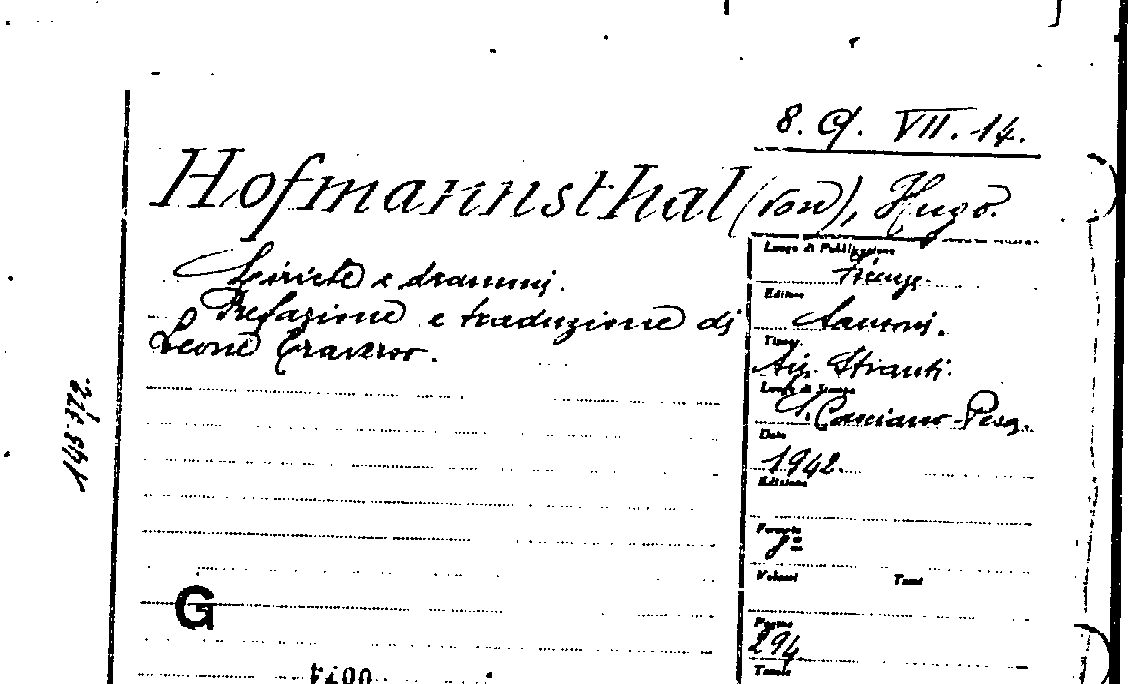 8. G. VII. 14.
Hofmannsthal (von), Hugo.
Liriche e drammi.
Prefazione e traduzione di
Leone Traverso.
Luogo di Pubblicazione
Firenze.
Editore
Sansoni.
Tipogr.
Stianti.
Luogo di Stampa
S. Casciano-Pesa.
Data
1942.
Edizione
Formato
8º
Volumi Tomi
Pagine
294
Tavole
G